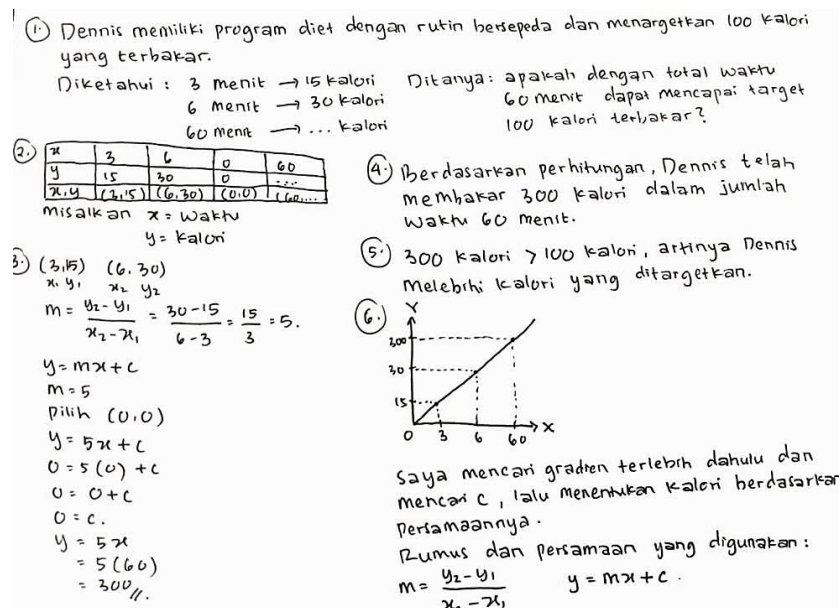 1. Dennis memiliki program diet dengan rutin bersepeda dan menargetkan 100 kalori
yang terbakar.
Diketahui : 3 menit → 15 kalori
6 menit → 30 kalori
60 menit → ... kalori
Ditanya : apakah dengan total waktu
60 menit dapat mencapai target
100 kalori terbakar?
2.
x 3 6 0 60
y 15 30 0 ...
x,y (3,15) (6,30) (0,0) (60,...
misalkan x = waktu
y = kalori
3.) (3,15) (6,30)
x₁ y₁ x₂ y₂
m = y₂ - y₁ / x₂ - x₁ = 30 - 15 / 6 - 3 = 15 / 3 = 5.
y = mx + c
m = 5
Pilih (0,0)
y = 5x + c
0 = 5 (0) + c
0 = 0 + c
0 = c.
y = 5x
= 5 (60)
= 300 //.
4. Berdasarkan perhitungan, Dennis telah
membakar 300 kalori dalam jumlah
waktu 60 menit.
5. 300 kalori > 100 kalori, artinya Dennis
melebihi kalori yang ditargetkan.
6.
Y
300
30
15
0 3 6 60 X
Saya mencari gradien terlebih dahulu dan
mencari c, lalu menentukan kalori berdasarkan
persamaannya.
Rumus dan persamaan yang digunakan :
m = y₂ - y₁ / x₂ - x₁ y = mx + c.